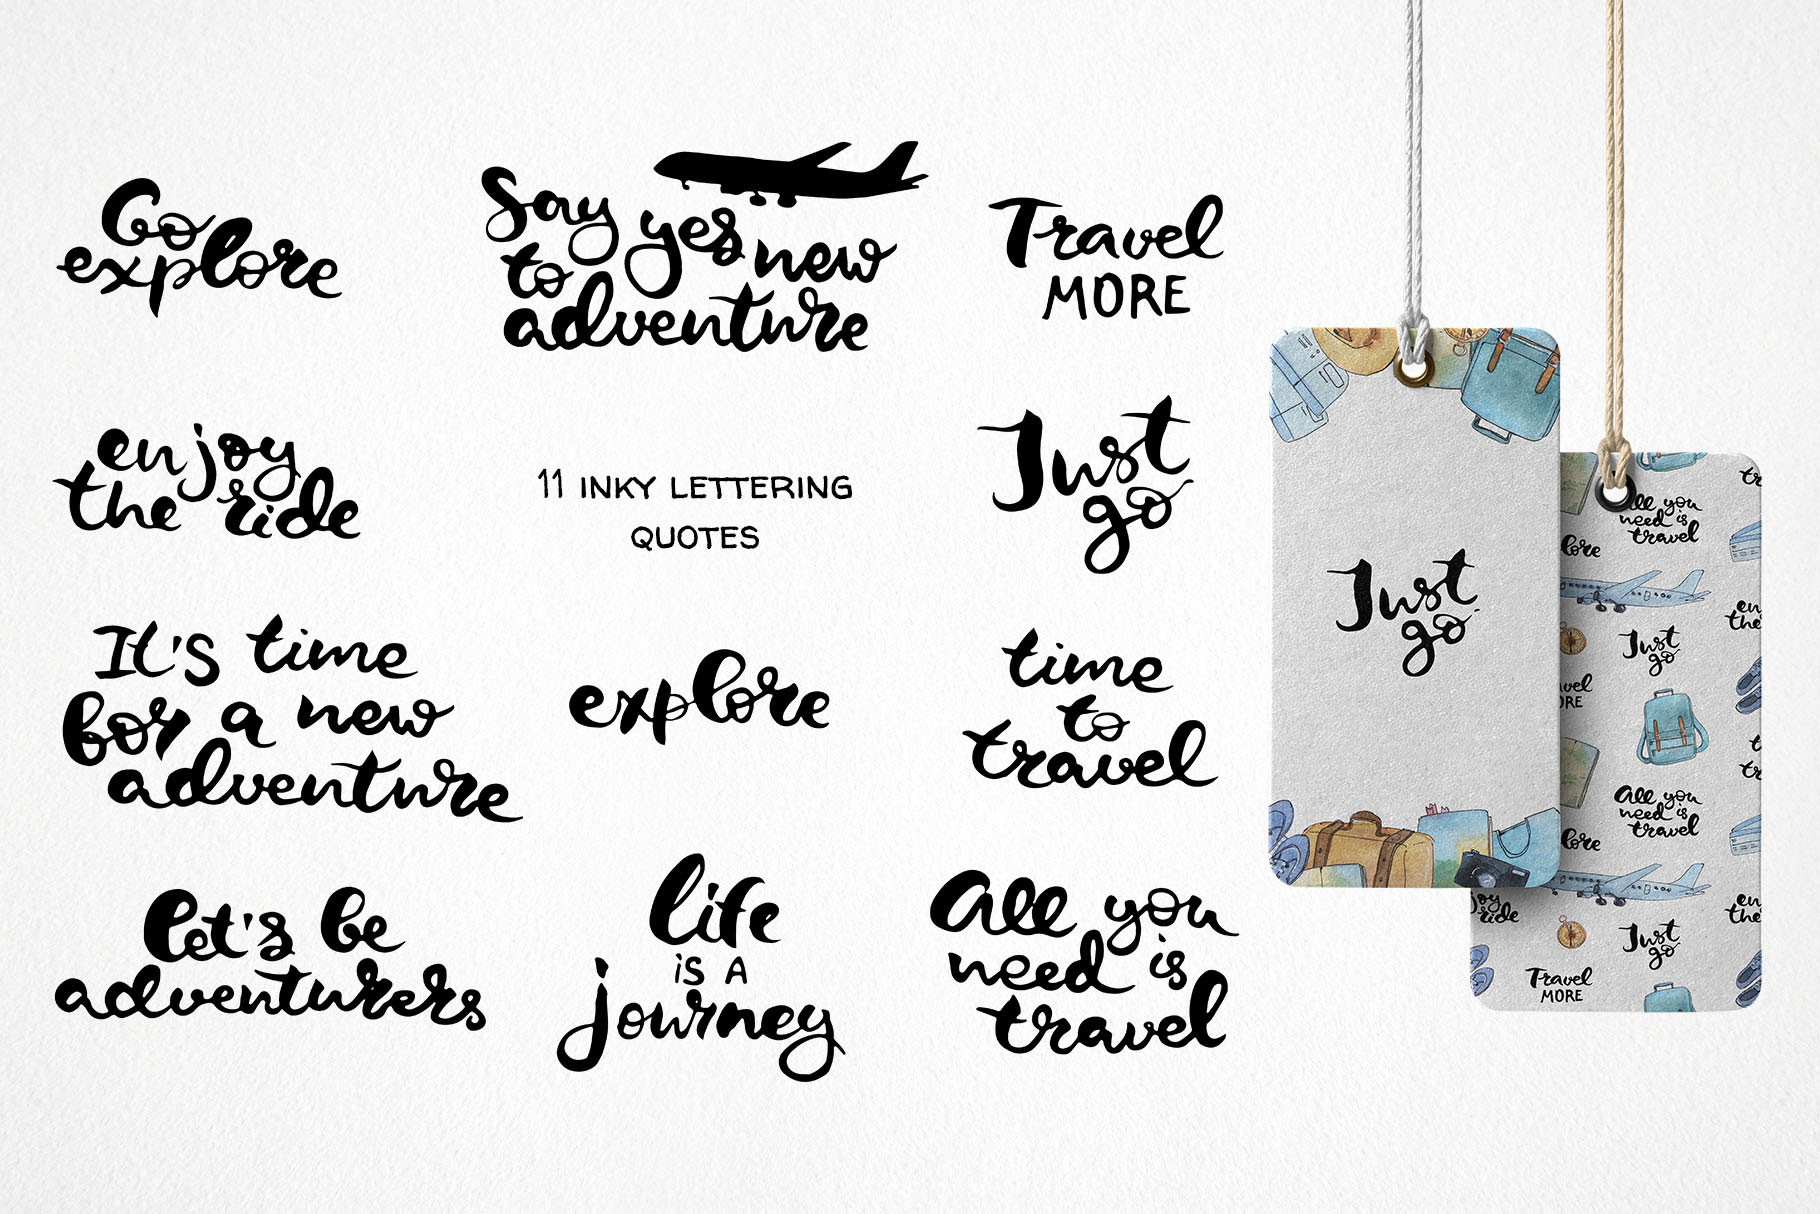 Go
explore
Say yes
to new
adventure
Travel
MORE
enjoy
the ride
11 INKY LETTERING
QUOTES
Just
go
It's time
for a new
adventure
explore
time
to
travel
let's be
adventurers
life
is A
journey
All you
need is
travel
Just
go
All you
need is
travel
lore
en
the
Just
go
avel
ORE
All you
need is
travel
lore
joy
ride
en
the
Just
go
Travel
MORE